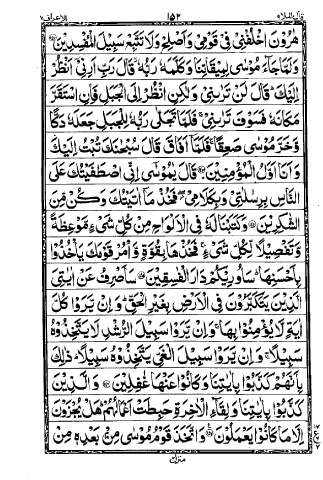 قال الملا ٩ ١٥٢ الاعراف ٧
هٰرُوْنَ اخْلُفْنِيْ فِيْ قَوْمِيْ وَاَصْلِحْ وَلَا تَتَّبِعْ سَبِيْلَ الْمُفْسِدِيْنَ
وَلَمَّا جَآءَ مُوْسٰى لِمِيْقَاتِنَا وَكَلَّمَهٗ رَبُّهٗ ۙ قَالَ رَبِّ اَرِنِيْٓ اَنْظُرْ
اِلَيْكَ ؕ قَالَ لَنْ تَرٰىنِيْ وَلٰكِنِ انْظُرْ اِلَى الْجَبَلِ فَاِنِ اسْتَقَرَّ
مَكَانَهٗ فَسَوْفَ تَرٰىنِيْ ۚ فَلَمَّا تَجَلّٰى رَبُّهٗ لِلْجَبَلِ جَعَلَهٗ دَكًّا
وَّخَرَّ مُوْسٰى صَعِقًا ۚ فَلَمَّآ اَفَاقَ قَالَ سُبْحٰنَكَ تُبْتُ اِلَيْكَ
وَاَنَا اَوَّلُ الْمُؤْمِنِيْنَ قَالَ يٰمُوْسٰٓى اِنِّى اصْطَفَيْتُكَ عَلَى
النَّاسِ بِرِسٰلٰتِيْ وَبِكَلَامِيْ ۖ فَخُذْ مَآ اٰتَيْتُكَ وَكُنْ مِّنَ
الشّٰكِرِيْنَ وَكَتَبْنَا لَهٗ فِى الْاَلْوَاحِ مِنْ كُلِّ شَيْءٍ مَّوْعِظَةً
وَّتَفْصِيْلًا لِّكُلِّ شَيْءٍ ۚ فَخُذْهَا بِقُوَّةٍ وَّاْمُرْ قَوْمَكَ يَاْخُذُوْا
بِاَحْسَنِهَا ؕ سَاُورِيْكُمْ دَارَ الْفٰسِقِيْنَ سَاَصْرِفُ عَنْ اٰيٰتِيَ
الَّذِيْنَ يَتَكَبَّرُوْنَ فِى الْاَرْضِ بِغَيْرِ الْحَقِّ ؕ وَاِنْ يَّرَوْا كُلَّ
اٰيَةٍ لَّا يُؤْمِنُوْا بِهَا ۚ وَاِنْ يَّرَوْا سَبِيْلَ الرُّشْدِ لَا يَتَّخِذُوْهُ
سَبِيْلًا ۚ وَاِنْ يَّرَوْا سَبِيْلَ الْغَيِّ يَتَّخِذُوْهُ سَبِيْلًا ؕ ذٰلِكَ
بِاَنَّهُمْ كَذَّبُوْا بِاٰيٰتِنَا وَكَانُوْا عَنْهَا غٰفِلِيْنَ وَالَّذِيْنَ
كَذَّبُوْا بِاٰيٰتِنَا وَلِقَآءِ الْاٰخِرَةِ حَبِطَتْ اَعْمَالُهُمْ ؕ هَلْ يُجْزَوْنَ
اِلَّا مَا كَانُوْا يَعْمَلُوْنَ وَاتَّخَذَ قَوْمُ مُوْسٰى مِنْۢ بَعْدِهٖ مِنْ